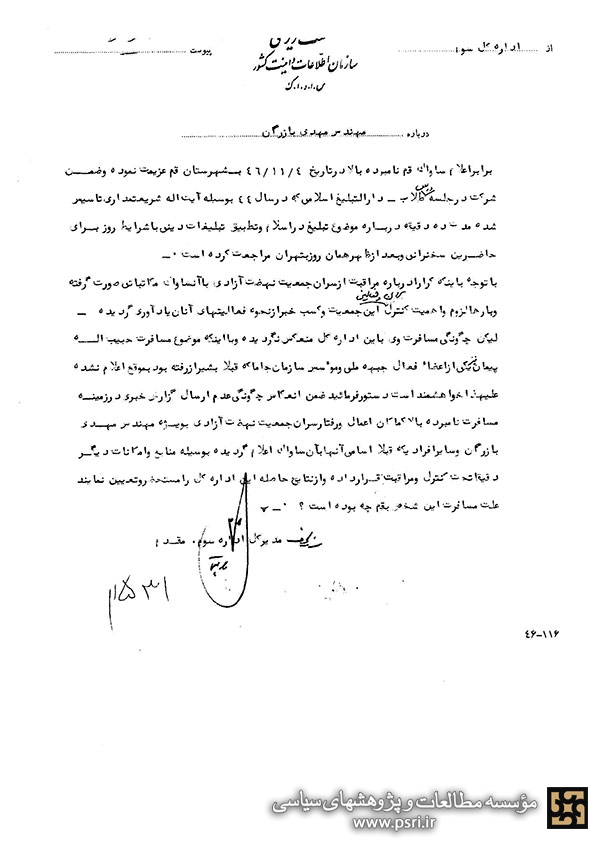 از اداره کل سوم
پیوست
سازمان اطلاعات و امنیت کشور
س.ا.و.ا.ک
درباره مهندس مهدی بازرگان
برابر اعلام ساواک قم نامبرده بالا در تاریخ ۴۶/۱۱/۴ بشهرستان قم عزیمت نموده و ضمن
شرکت در جلسه دارالتبلیغ اسلامی که در سال ۴۴ بوسیله آیت اله شریعتمداری تاسیس
شده مدت ده دقیقه درباره موضوع تبلیغ در اسلام و تطبیق تبلیغات دینی با شرایط روز برای
حاضرین سخنرانی و بعد از ظهر همان روز بتهران مراجعت کرده است ۰ـ
با توجه باینکه کرارا درباره مراقبت از سران جمعیت نهضت آزادی با آنساواک مکاتباتی صورت گرفته
و بارها لزوم و اهمیت کنترل این جمعیت و کسب خبر از نحوه فعالیتهای آنان یادآوری گردیده ـ
لیکن چگونگی مسافرت وی باین اداره کل منعکس نگردیده و با اینکه موضوع مسافرت حبیب اله
پیمان یکی از اعضاء فعال جبهه ملی و موسس سازمان جاما که قبلا بشیراز رفته بود بموقع اعلام نشده
علیهذا خواهشمند است دستور فرمائید ضمن انعکاس چگونگی عدم ارسال گزارش خبری در زمینه
مسافرت نامبرده بالا کماکان اعمال و رفتار سران جمعیت نهضت آزادی بویژه مهندس مهدی
بازرگان و سایر افرادیکه قبلا اسامی آنها بآن ساواک اعلام گردیده بوسیله منابع و امکانات دیگر
دقیقا تحت کنترل و مراقبت قرار داده و از نتایج حاصله این اداره کل را مستحضر و تعیین نمایند
علت مسافرت این شخص بقم چه بوده است ؟ ۰ـ
مدیر کل اداره سوم. مقدم
۴۶-۱۱۶
مؤسسه مطالعات و پژوهشهای سیاسی
www.psri.ir